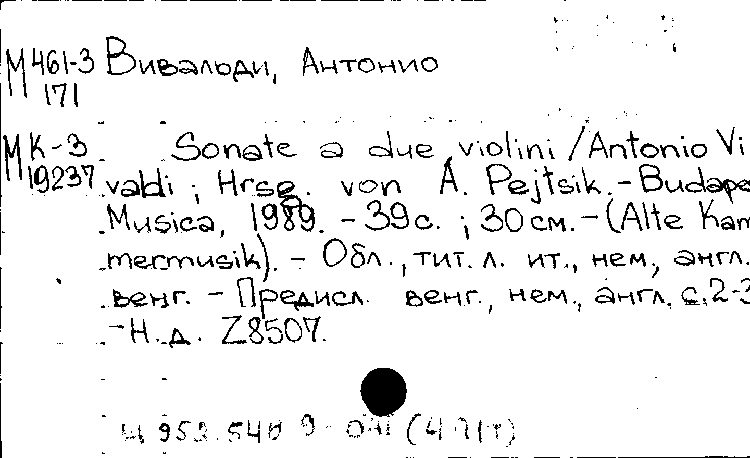 М 461-3 Вивальди, Антонио
171
МК-3 Sonate a due violini / Antonio Vi
19237 valdi ; Hrsg. von A. Pejtsik. - Budape
Musica, 1989. - 39 с. ; 30 см. - (Alte Kam
mermusik). - Обл., тит. л. ит., нем., англ.
венг. - Предисл. венг., нем., англ. с. 2-3
- Н. д. Z8507.